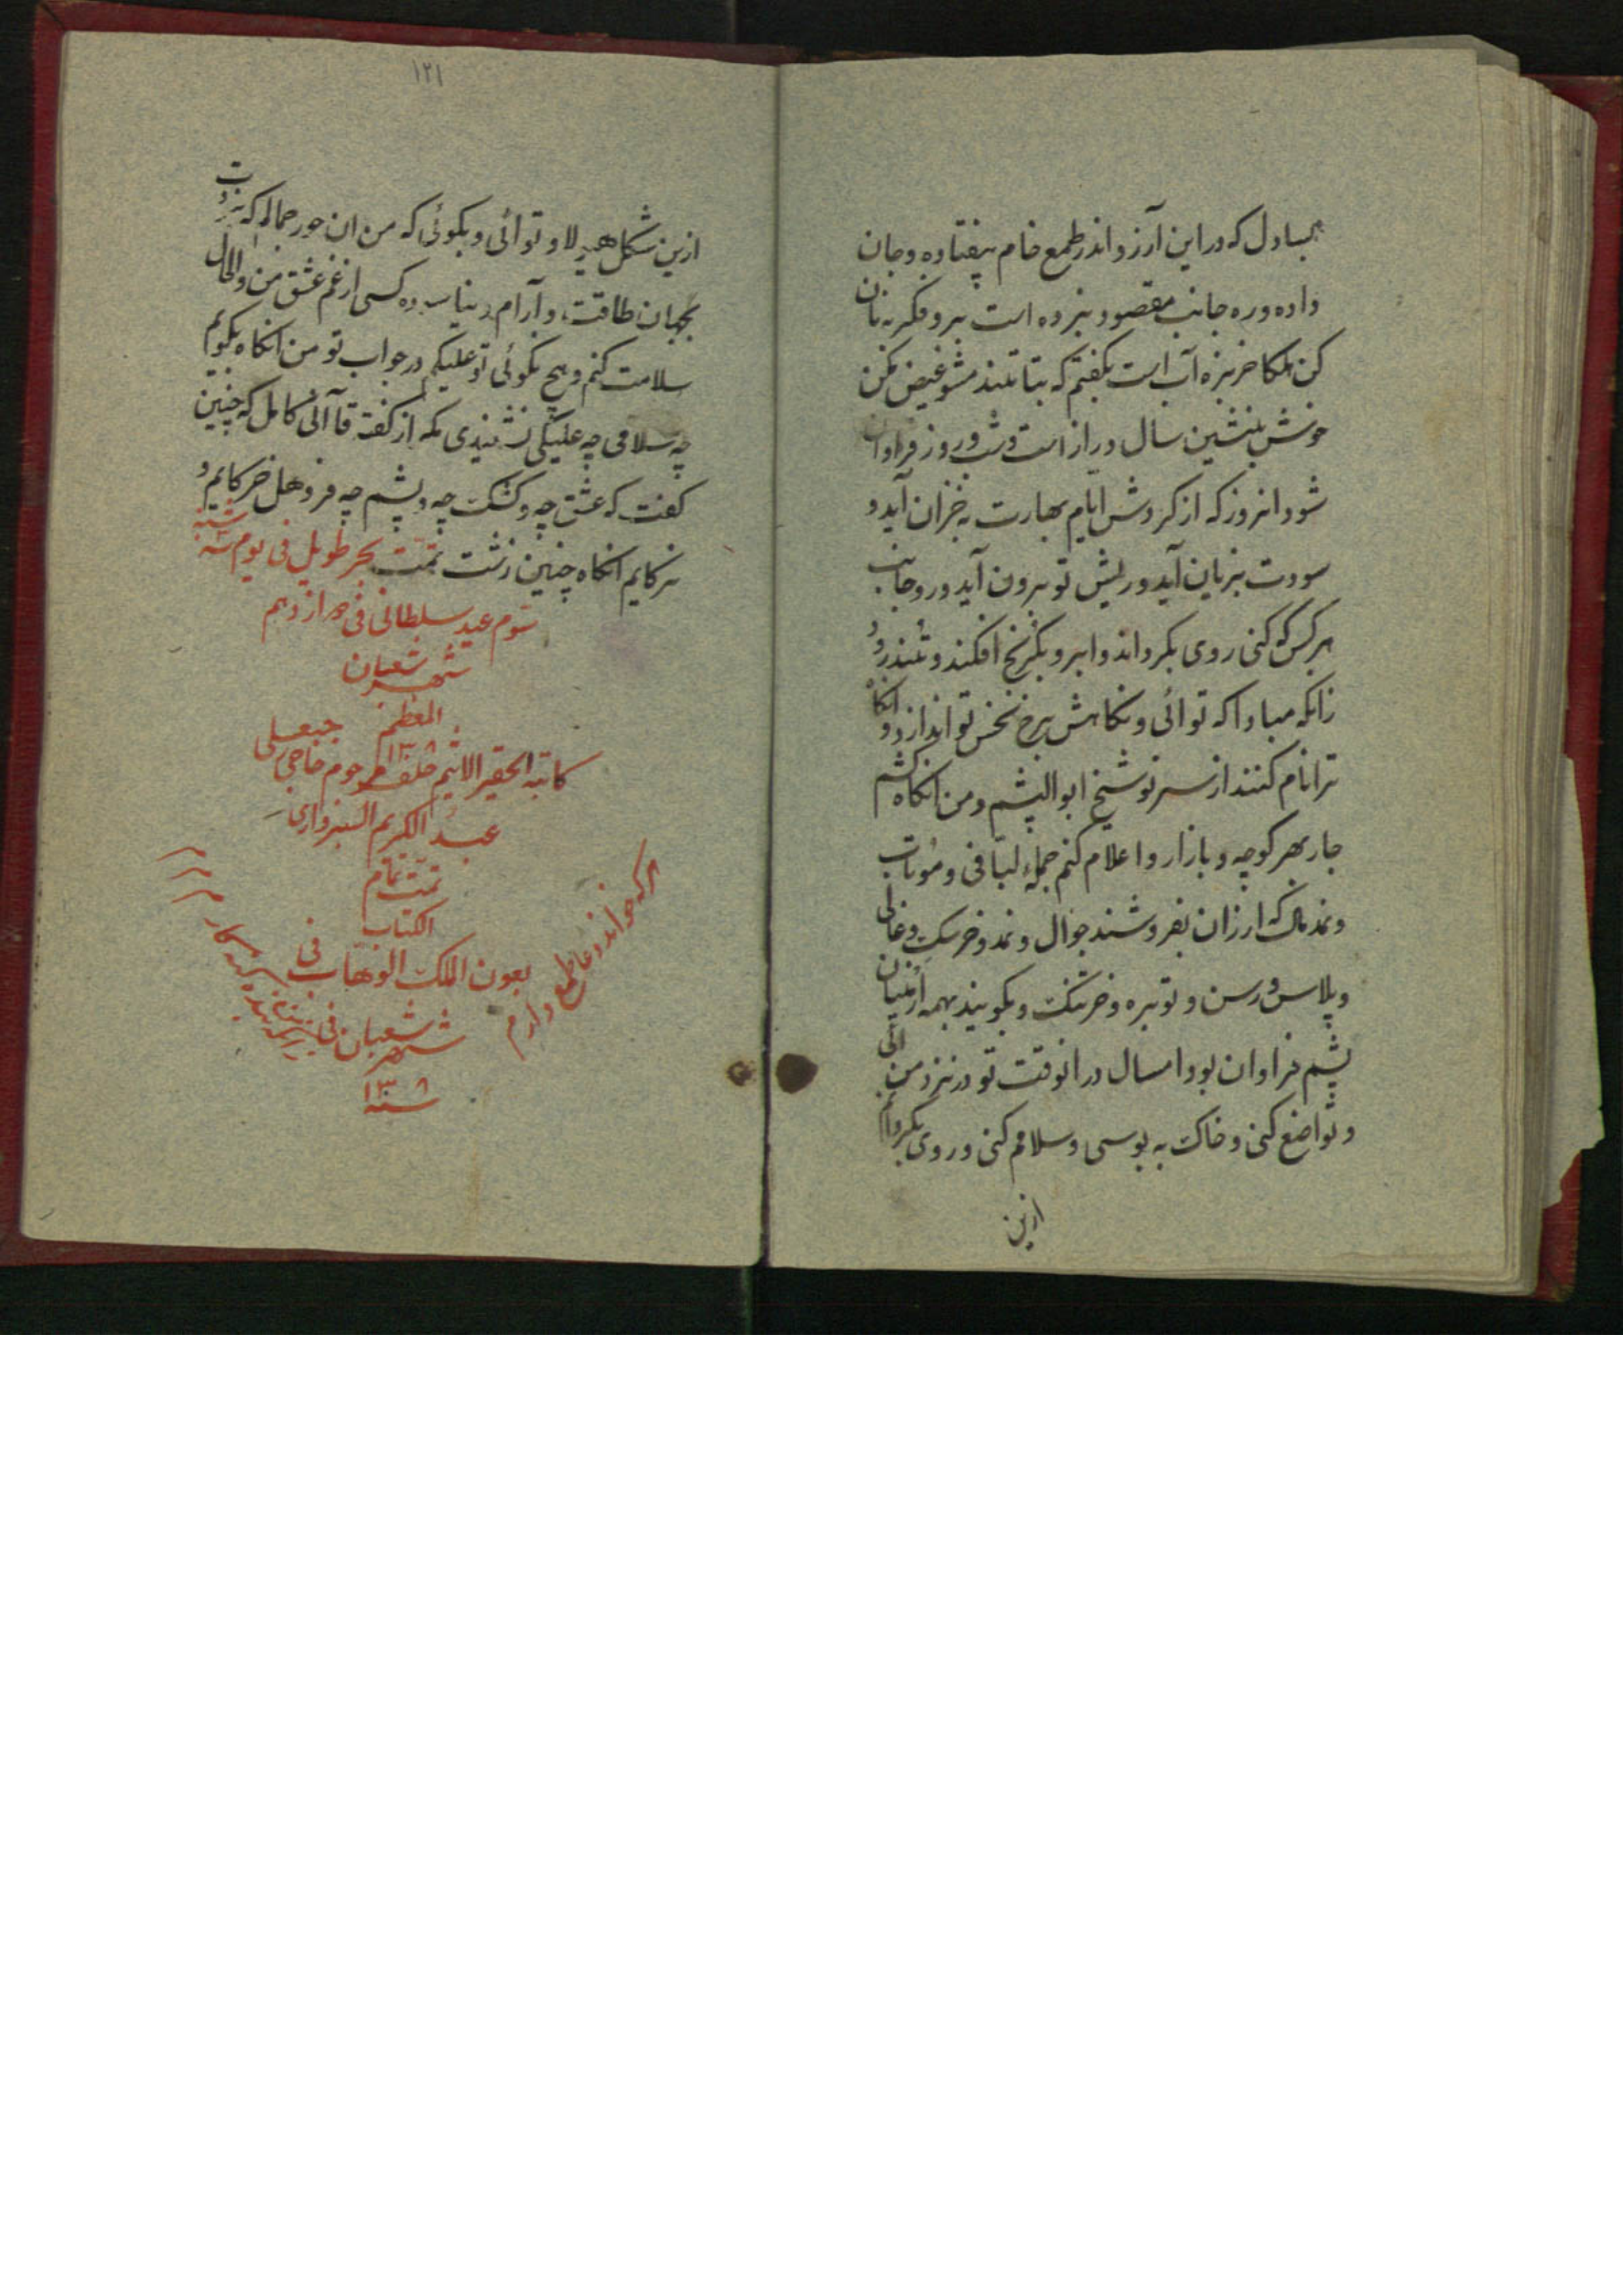 بسا دل که در این آرزو اندر طمع خام بیفتاده و جان
داده و ره جانب مقصود نبرده است برو فکر به نان
کن بلکا خربزه آب است بگفتم که بتا تند مشو غیض مکن
خوش بنشین سال دراز است و شب و روز فراوان
شود انروز که از کردوش ایام بهارت بخزان آید و
سودت بزیان آید و ریش تو برون آید و رو جانب
هر کس که کنی روی بگرداند و ابرو بگره افکند و تند رود
زانکه مبادا که تو آئی و نگاهش برخ نحس تو اندازد و انگاه
ترا نام کنند از سر نو شیخ ابوالپشم و من انگاه کشم
جار بهر کوچه و بازار و اعلام کنم جمله لبافی و موتاب
و نمدمال که ارزان بفروشند جوال و نمد و خرسک و غالی
و پلاس و رسن و توبره و خرشنک و بگویند بهمه
پشم فراوان بود امسال در انوقت تو در نزد من آئی
و تواضع کنی و خاک به بوسی و سلامم کنی و روی بگردانم
ازین
۱۲۱
ازین شکل و تو آئی و بگوئی که من ان حور جمالم که نبردت
بجهان طاقت و آرام دنیا کسی از غم عشق من والحال
سلامت کنم و هیچ نگوئی تو علیکم در جواب تو من انگاه بگویم
چه سلامی چه علیکی نشنیدی مگر از گفته قاآنی کامل که چنین
گفت که عشق چه و کشک چه و پشم چه
انگاه چنین زشت تمت بحر طویل فی یوم سه شنبه
سوم عید سلطانی فی دوازدهم
شهر شعبان
المعظم
۱۳۰۸
کاتبه الحقیر الاثیم خلف مرحوم حاجی
عبد الکریم السبزواری
تمت تمام
الکتاب
بعون الملک الوهاب فی
شهر شعبان فی
سنه ۱۳۰۸
هر که خواند دعا طمع دارم